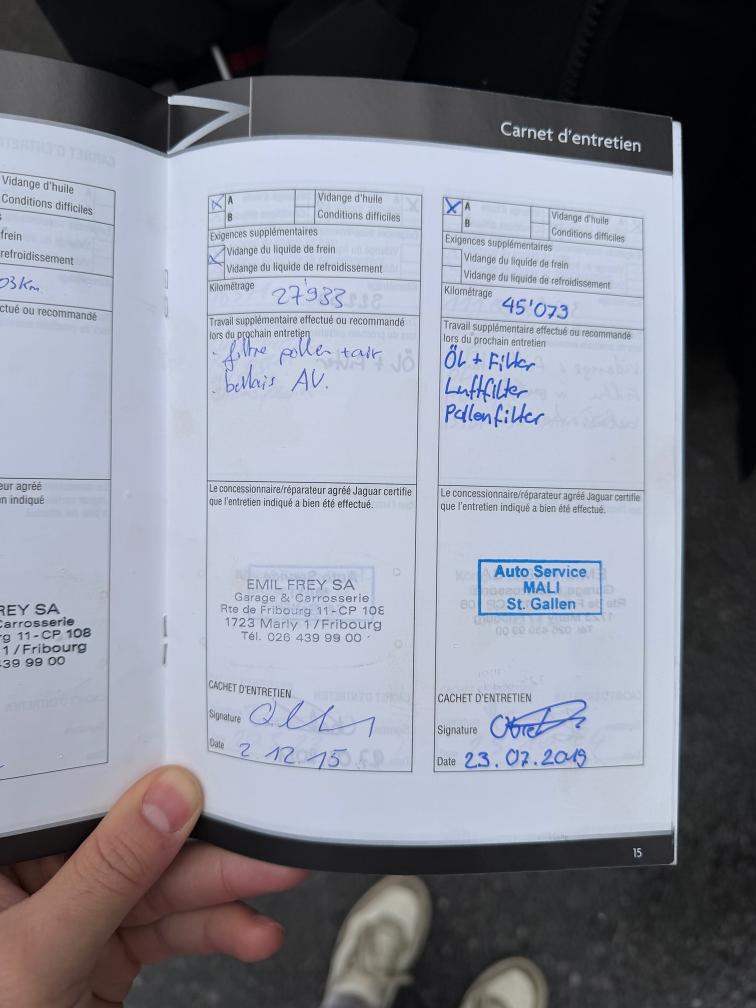 Carnet d'entretien
Vidange d'huile
Conditions difficiles
frein
refroidissement
03km
ctué ou recommandé
eur agréé
n indiqué
REY SA
Carrosserie
g 11-CP 108
1/Fribourg
39 99 00
A
B
Vidange d'huile
Conditions difficiles
Exigences supplémentaires
Vidange du liquide de frein
Vidange du liquide de refroidissement
Kilométrage
27'933
Travail supplémentaire effectué ou recommandé
lors du prochain entretien
· filtre pollen + air
· AV.
Le concessionnaire/réparateur agréé Jaguar certifie
que l'entretien indiqué a bien été effectué.
EMIL FREY SA
Garage & Carrosserie
Rte de Fribourg 11-CP 108
1723 Marly 1/Fribourg
Tél. 026 439 99 00
CACHET D'ENTRETIEN
Signature
Date 2 12 15
A
B
Vidange d'huile
Conditions difficiles
Exigences supplémentaires
Vidange du liquide de frein
Vidange du liquide de refroidissement
Kilométrage
45'073
Travail supplémentaire effectué ou recommandé
lors du prochain entretien
Öl + Filter
Luftfilter
Pollenfilter
Le concessionnaire/réparateur agréé Jaguar certifie
que l'entretien indiqué a bien été effectué.
Auto Service
MALI
St. Gallen
CACHET D'ENTRETIEN
Signature
Date 23.07.2019
15